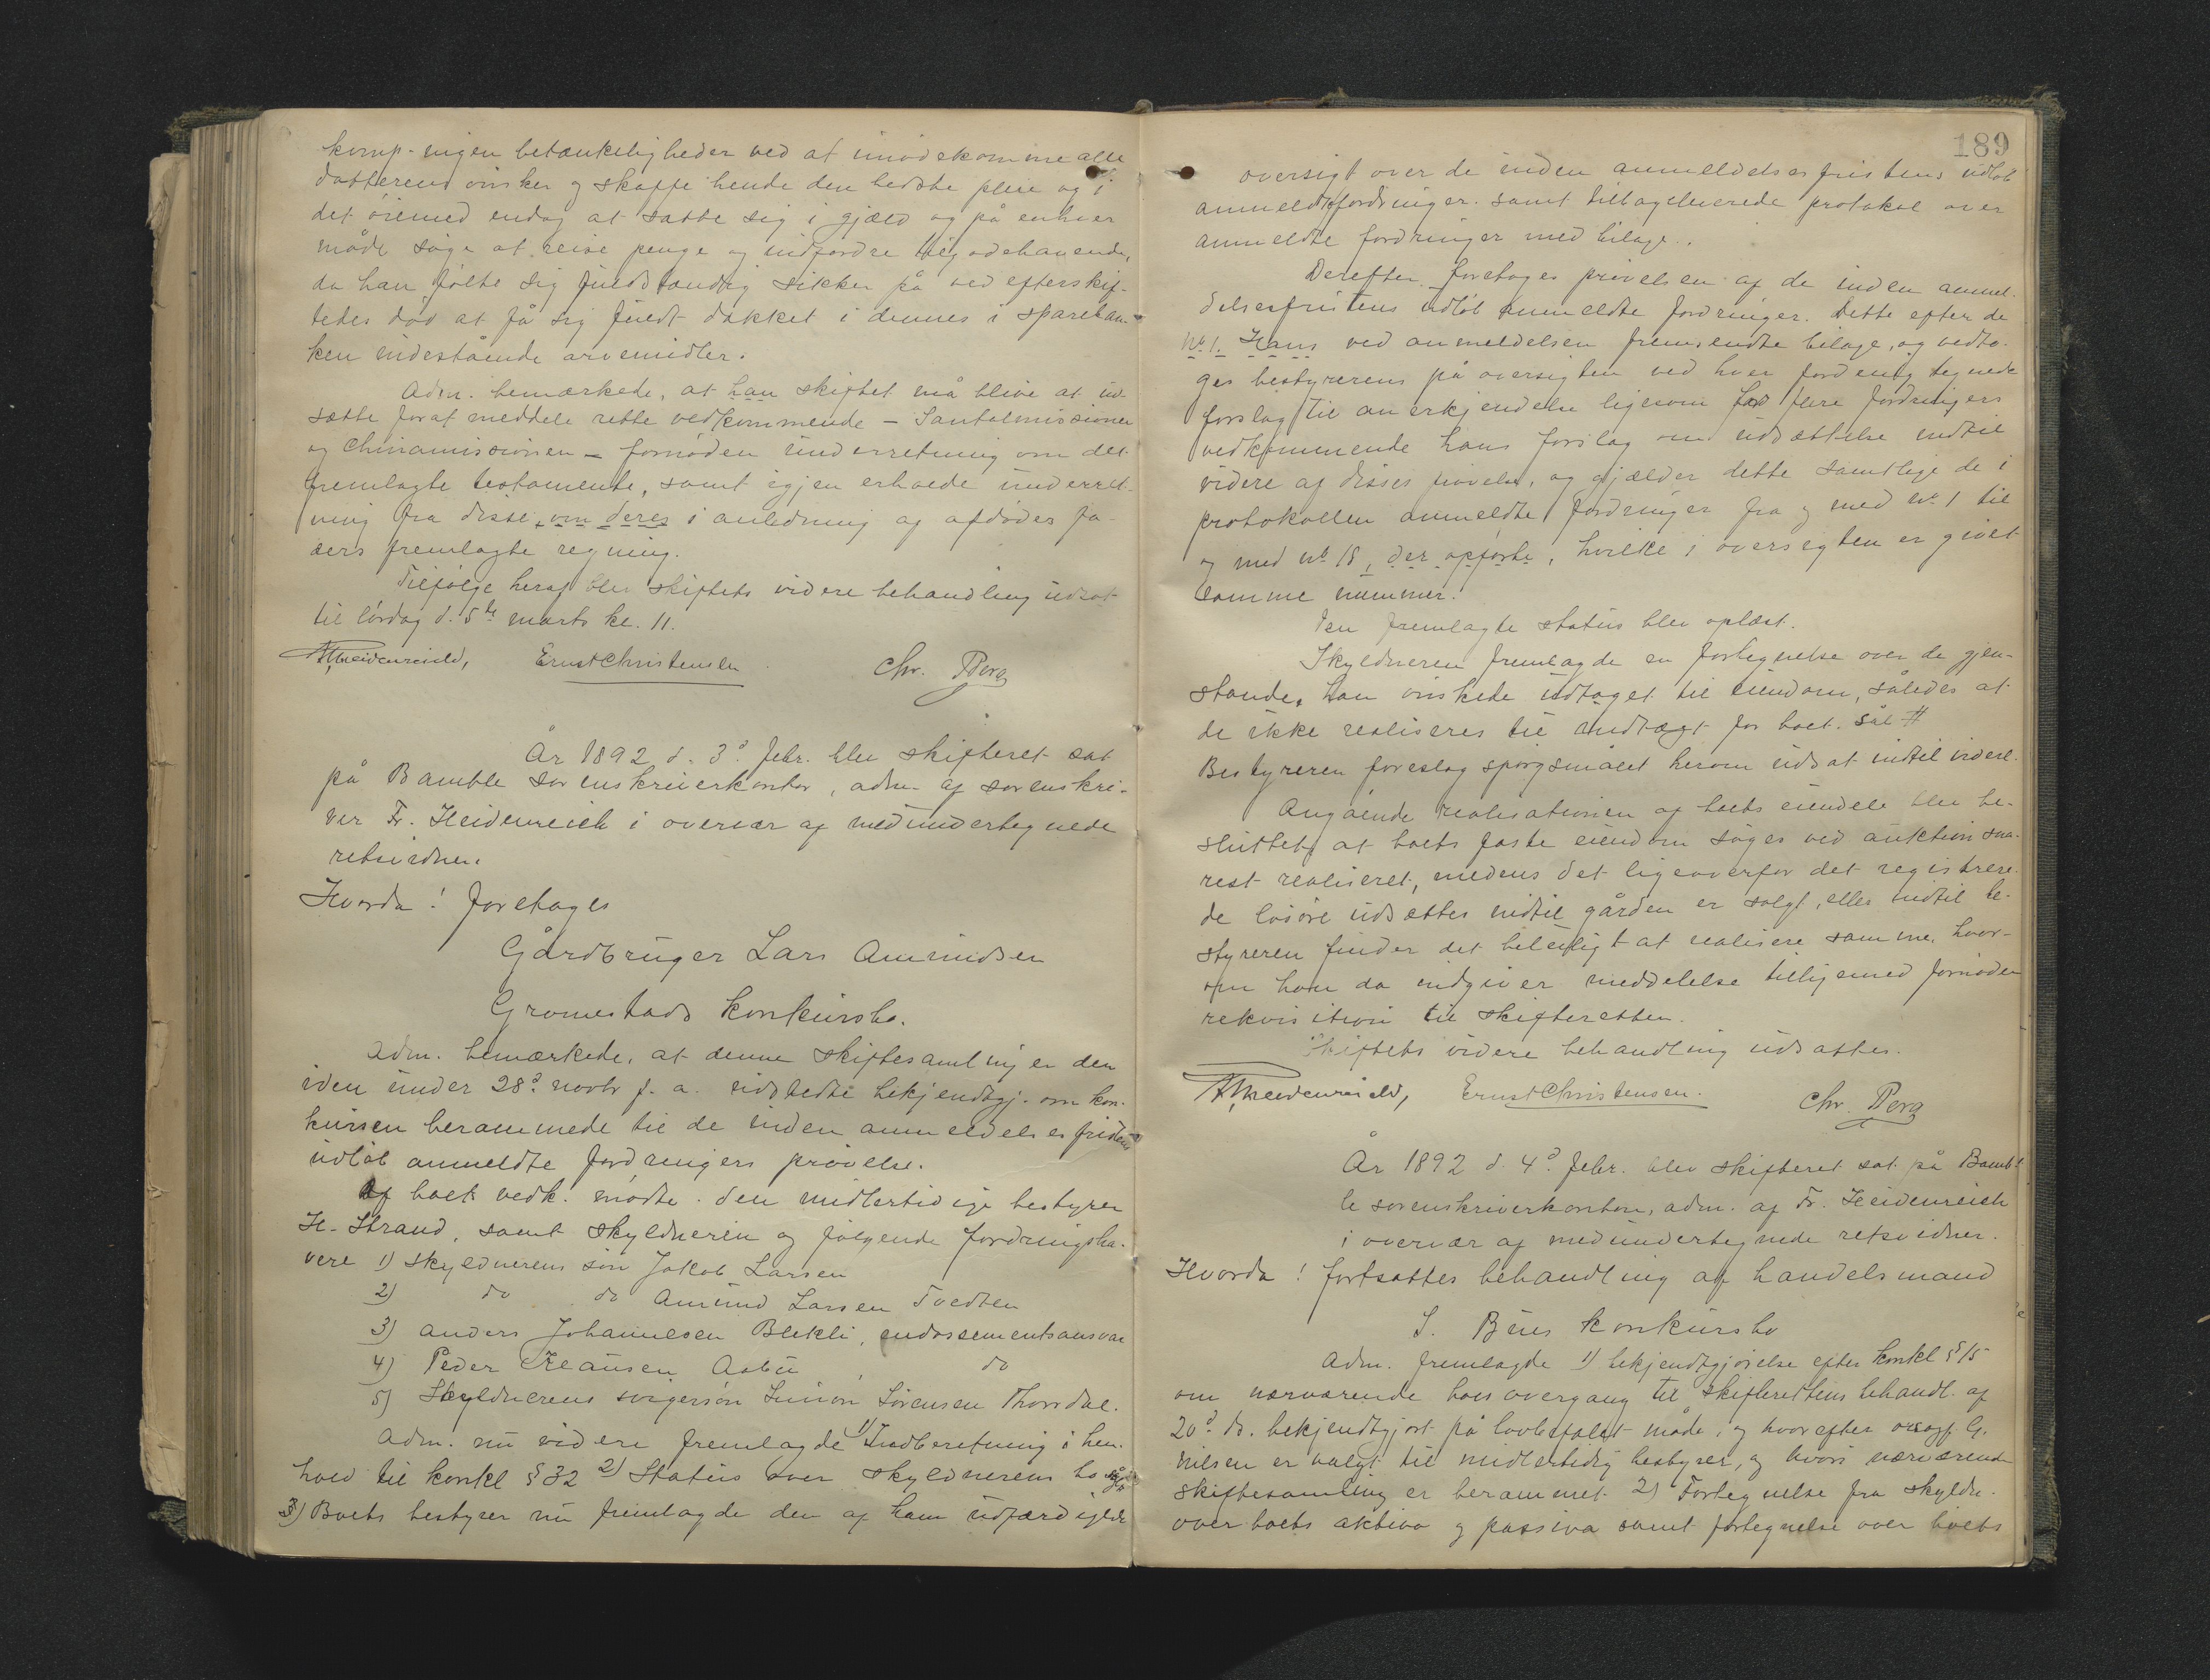 komp. ingen betænkeligheder ved at imødekomme alle
datterens ønsker og skaffe hende den bedste pleie og i
det øiemed endog at sætte sig i gjæld og på enhver
måde søge at reise penge og indfordre tilgodehavende,
da han følte sig fuldstændig sikker på ved efterskif-
tedes død at få sig fuldt dækket i dennes i spareban-
ken indestående arvemidler.
Adm. bemærkede, at han skiftet må blive at ud-
sætte forat meddele rette vedkommende - Santalmissionen
og Chinamissionen - fornøden underretning om det
fremlagte testamente, samt igjen erholde underret-
ning fra disse, om deres i anledning af afdødes fa-
ders fremlagte regning.
Tilfølge heraf blev skiftets videre behandling udsat
til lørdag d. 5te marts kl. 11.
Fr Heidenreich, Ernst Christensen. Chr. Berg
År 1892 d. 3d febr. blev skifteret sat
på Bamble sorenskriverkontor, adm. af sorenskri-
ver Fr. Heidenreich i overvær af medundertegnede
retsvidner.
Hvorda! foretoges
Gårdbruger Lars Amundsen
Gromstads konkursbo.
Adm. bemærkede, at denne skiftesamling er den
iden under 28d novbr f. a. udstedte bekjendtgj. om kon-
kursen berammede til de inden anmeldelsesfristens
udløb anmeldte fordringers prøvelse.
Af boets vedk. mødte den midlertidige bestyrer
H. Strand, samt skyldneren og følgende fordringsha-
vere 1) skyldnerens søn Jakob Larsen
2) do do Amund Larsen Tvedten
3) Anders Johannesen Blekli, endossementsansvar
4) Peder Klausen Aabø, do
5) Skyldnerens svigersøn Simon Sørensen Thorsdal.
Adm. nu videre fremlagde 1) Indberetning i hen-
hold til konkl § 32 2) Status over skyldnerens bo
3) Boets bestyrer nu fremlagde den af ham udfærdigede
189
oversigt over de inden anmeldelsesfristens udløb
anmeldte fordringer. samt tilbageleverede protokol over
anmeldte fordringer med bilage.
Derefter foretoges prøvelsen af de inden anmel-
delsesfristens udløb anmeldte fordringer. Dette efter de
No 1. Hans ved anmeldelsen fremsendte bilage, og vedto-
ges bestyrerens på oversigten ved hver fordring tegnede
forslag til anerkjendelse ligesom for flere fordringers
vedkommende hans forslag om udsættelse indtil
videre af disses prøvelse, og gjælder dette samtlige de i
protokollen anmeldte fordringer fra og med no 1 til
og med no 18, der opførte, hvilke i oversigten er givet
samme nummer.
Den fremlagte status blev oplæst.
Skyldneren fremlagde en fortegnelse over de gjen-
stande, han ønskede udtaget til eiendom, således at
de ikke realiseres til indtægt for boet. #
Bestyreren foreslog spørgsmålet herom udsat indtil videre.
Angående realisationen af boets eiendele blev be-
sluttet, at boets faste eiendom søges ved auktion sna-
rest realiseret, medens det ligeoverfor det registrere-
de løsøre udsættes indtil gården er solgt, eller indtil be-
styreren finder det beleiligt at realisere samme, hvor-
om han da indgiver meddelelse tilligemed fornøden
rekvisition til skifteretten.
Skiftets videre behandling udsattes.
Fr Heidenreich, Ernst Christensen. Chr. Berg
År 1892 d. 4d febr. blev skifteret sat på Bamb-
le sorenskriverkontor, adm. af Fr. Heidenreich
i overvær af medundertegnede retsvidner.
Hvorda! fortsattes behandling af handelsmand
S. Bües konkursbo
Adm. fremlagde 1) bekjendtgjørelse efter konkl § 15
om nærværende boes overgang til skifterettens behandl. af
20d ds. bekjendtgjort på lovbefalet måde, og hvorefter G.
Nilsen er valgt til midlertidig bestyrer, og hvori nærværende
skiftesamling er berammet. 2) Fortegnelse fra skyldn.
over boets aktiva og passiva samt fortegnelse over boets